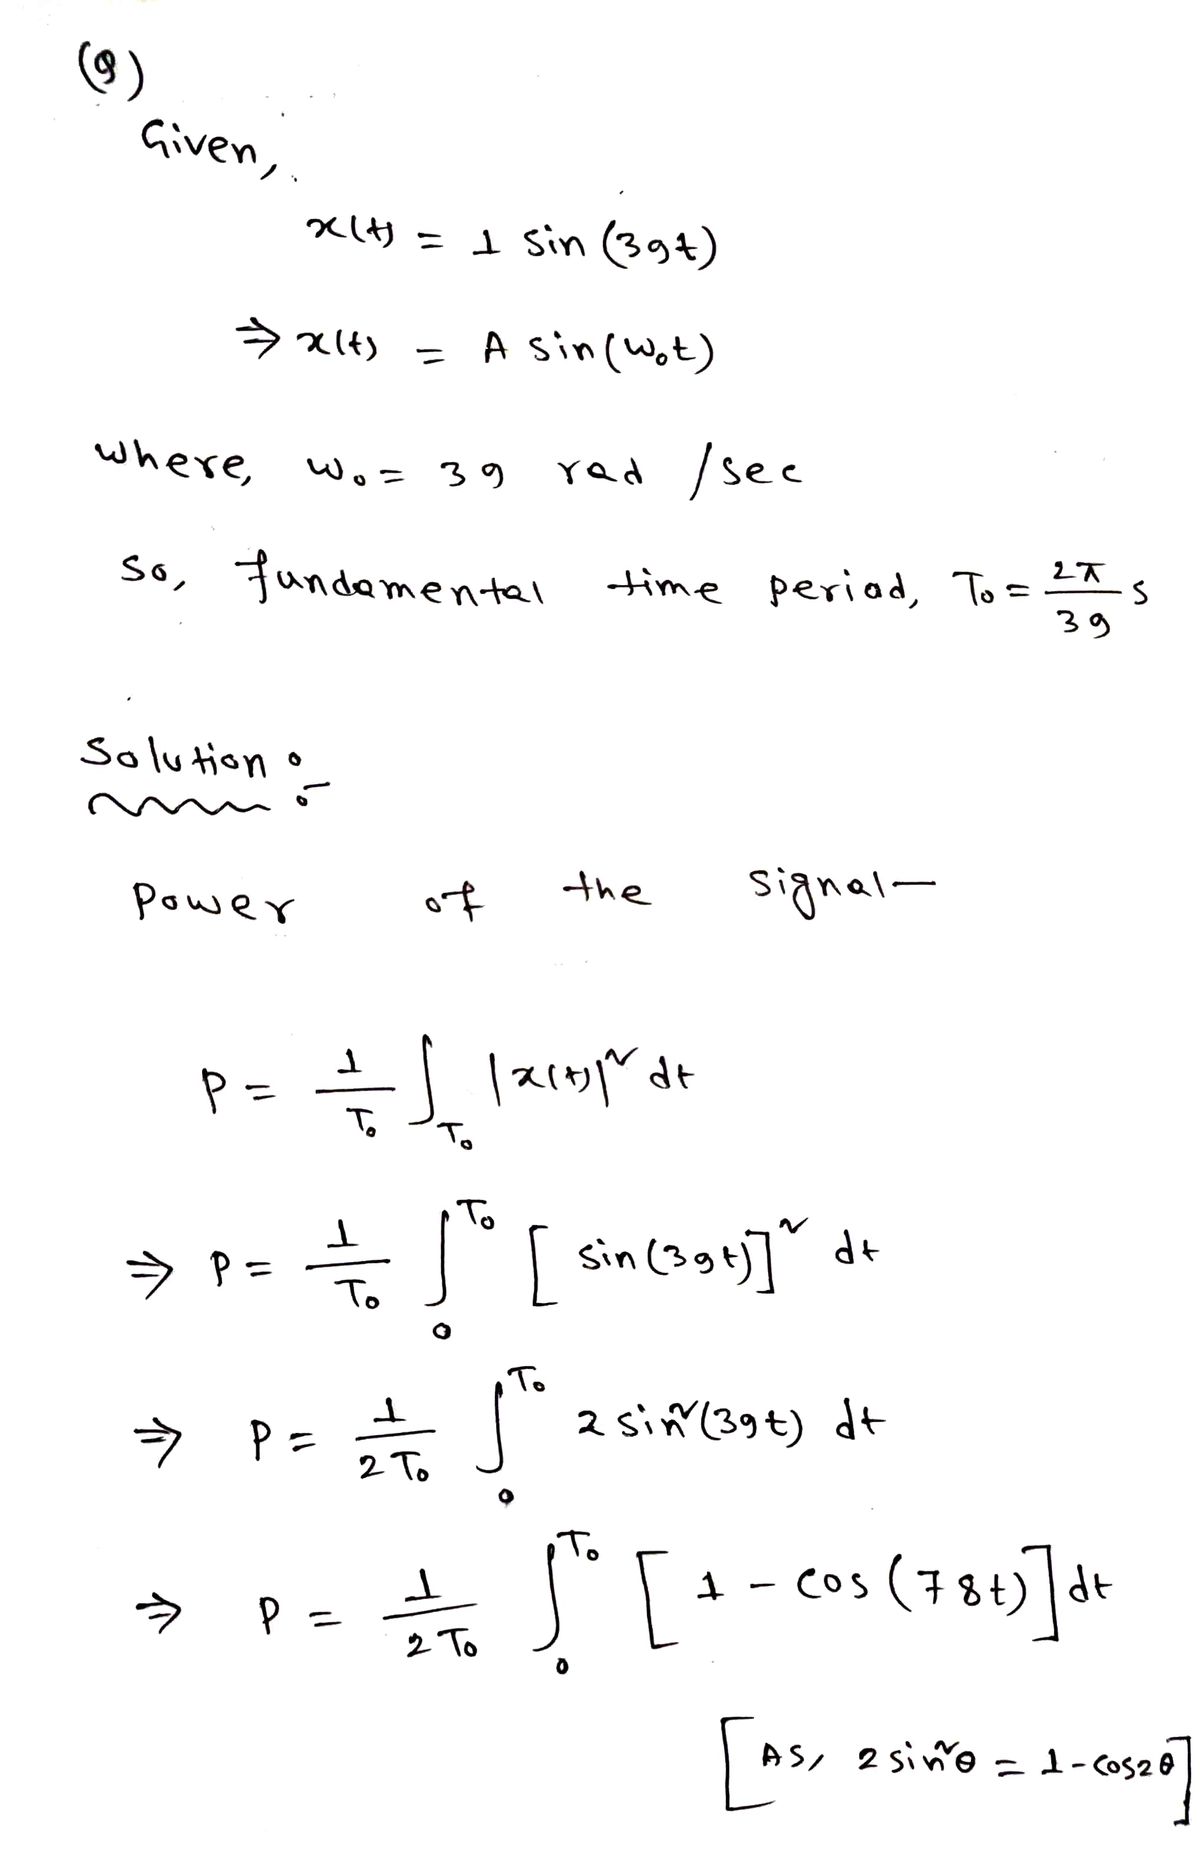 (9)
Given,
x(t) = 1 sin (39t)
⇒ x(t) = A sin(ω₀t)
where, ω₀ = 39 rad /sec
so, fundamental time period, T₀ = 2π/39 s
Solution :-
Power of the signal—
P = 1/T₀ ∫_T₀ |x(t)|² dt
⇒ P = 1/T₀ ∫₀^T₀ [ sin(39t)]² dt
⇒ P = 1/2T₀ ∫₀^T₀ 2 sin²(39t) dt
⇒ P = 1/2T₀ ∫₀^T₀ [ 1 - cos (78t)] dt
[As, 2 sin²θ = 1-cos2θ]